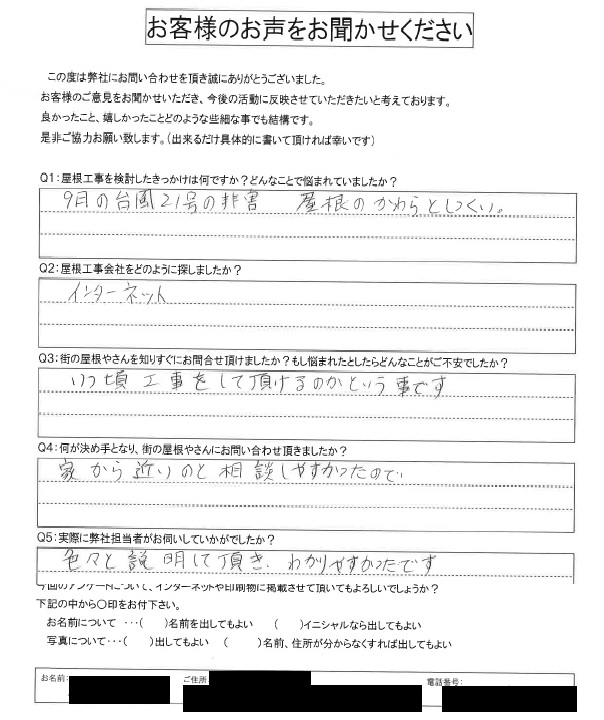 お客様のお声をお聞かせください
この度は弊社にお問い合わせを頂き誠にありがとうございました。
お客様のご意見をお聞かせいただき、今後の活動に反映させていただきたいと考えております。
良かったこと、嬉しかったことどのような些細な事でも結構です。
是非ご協力お願い致します。(出来るだけ具体的に書いて頂ければ幸いです)
Q1:屋根工事を検討したきっかけは何ですか?どんなことで悩まれていましたか?
9月の台風21号の非害 屋根のかわらとしっくい。
Q2:屋根工事会社をどのように探しましたか?
インターネット
Q3:街の屋根やさんを知りすぐにお問合せ頂けましたか?もし悩まれたとしたらどんなことがご不安でしたか?
いつ頃工事をして頂けるのかという事です
Q4:何が決め手となり、街の屋根やさんにお問い合わせ頂きましたか?
家から近いのと相談しやすかったので
Q5:実際に弊社担当者がお伺いしていかがでしたか?
色々と説明して頂き、わかりやすかったです
今回のアンケートについて、インターネットや印刷物に掲載させて頂いてもよろしいでしょうか?
下記の中から〇印をお付下さい。
お名前について ・・・( )名前を出してもよい ( )イニシャルなら出してもよい
写真について・・・( )出してもよい ( )名前、住所が分からなくすれば出してもよい
お名前: ご住所 電話番号: